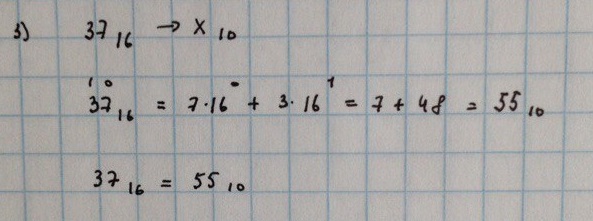 3) 37₁₆ → X₁₀
¹ ⁰
37₁₆ = 7·16⁰ + 3·16¹ = 7 + 48 = 55₁₀
37₁₆ = 55₁₀